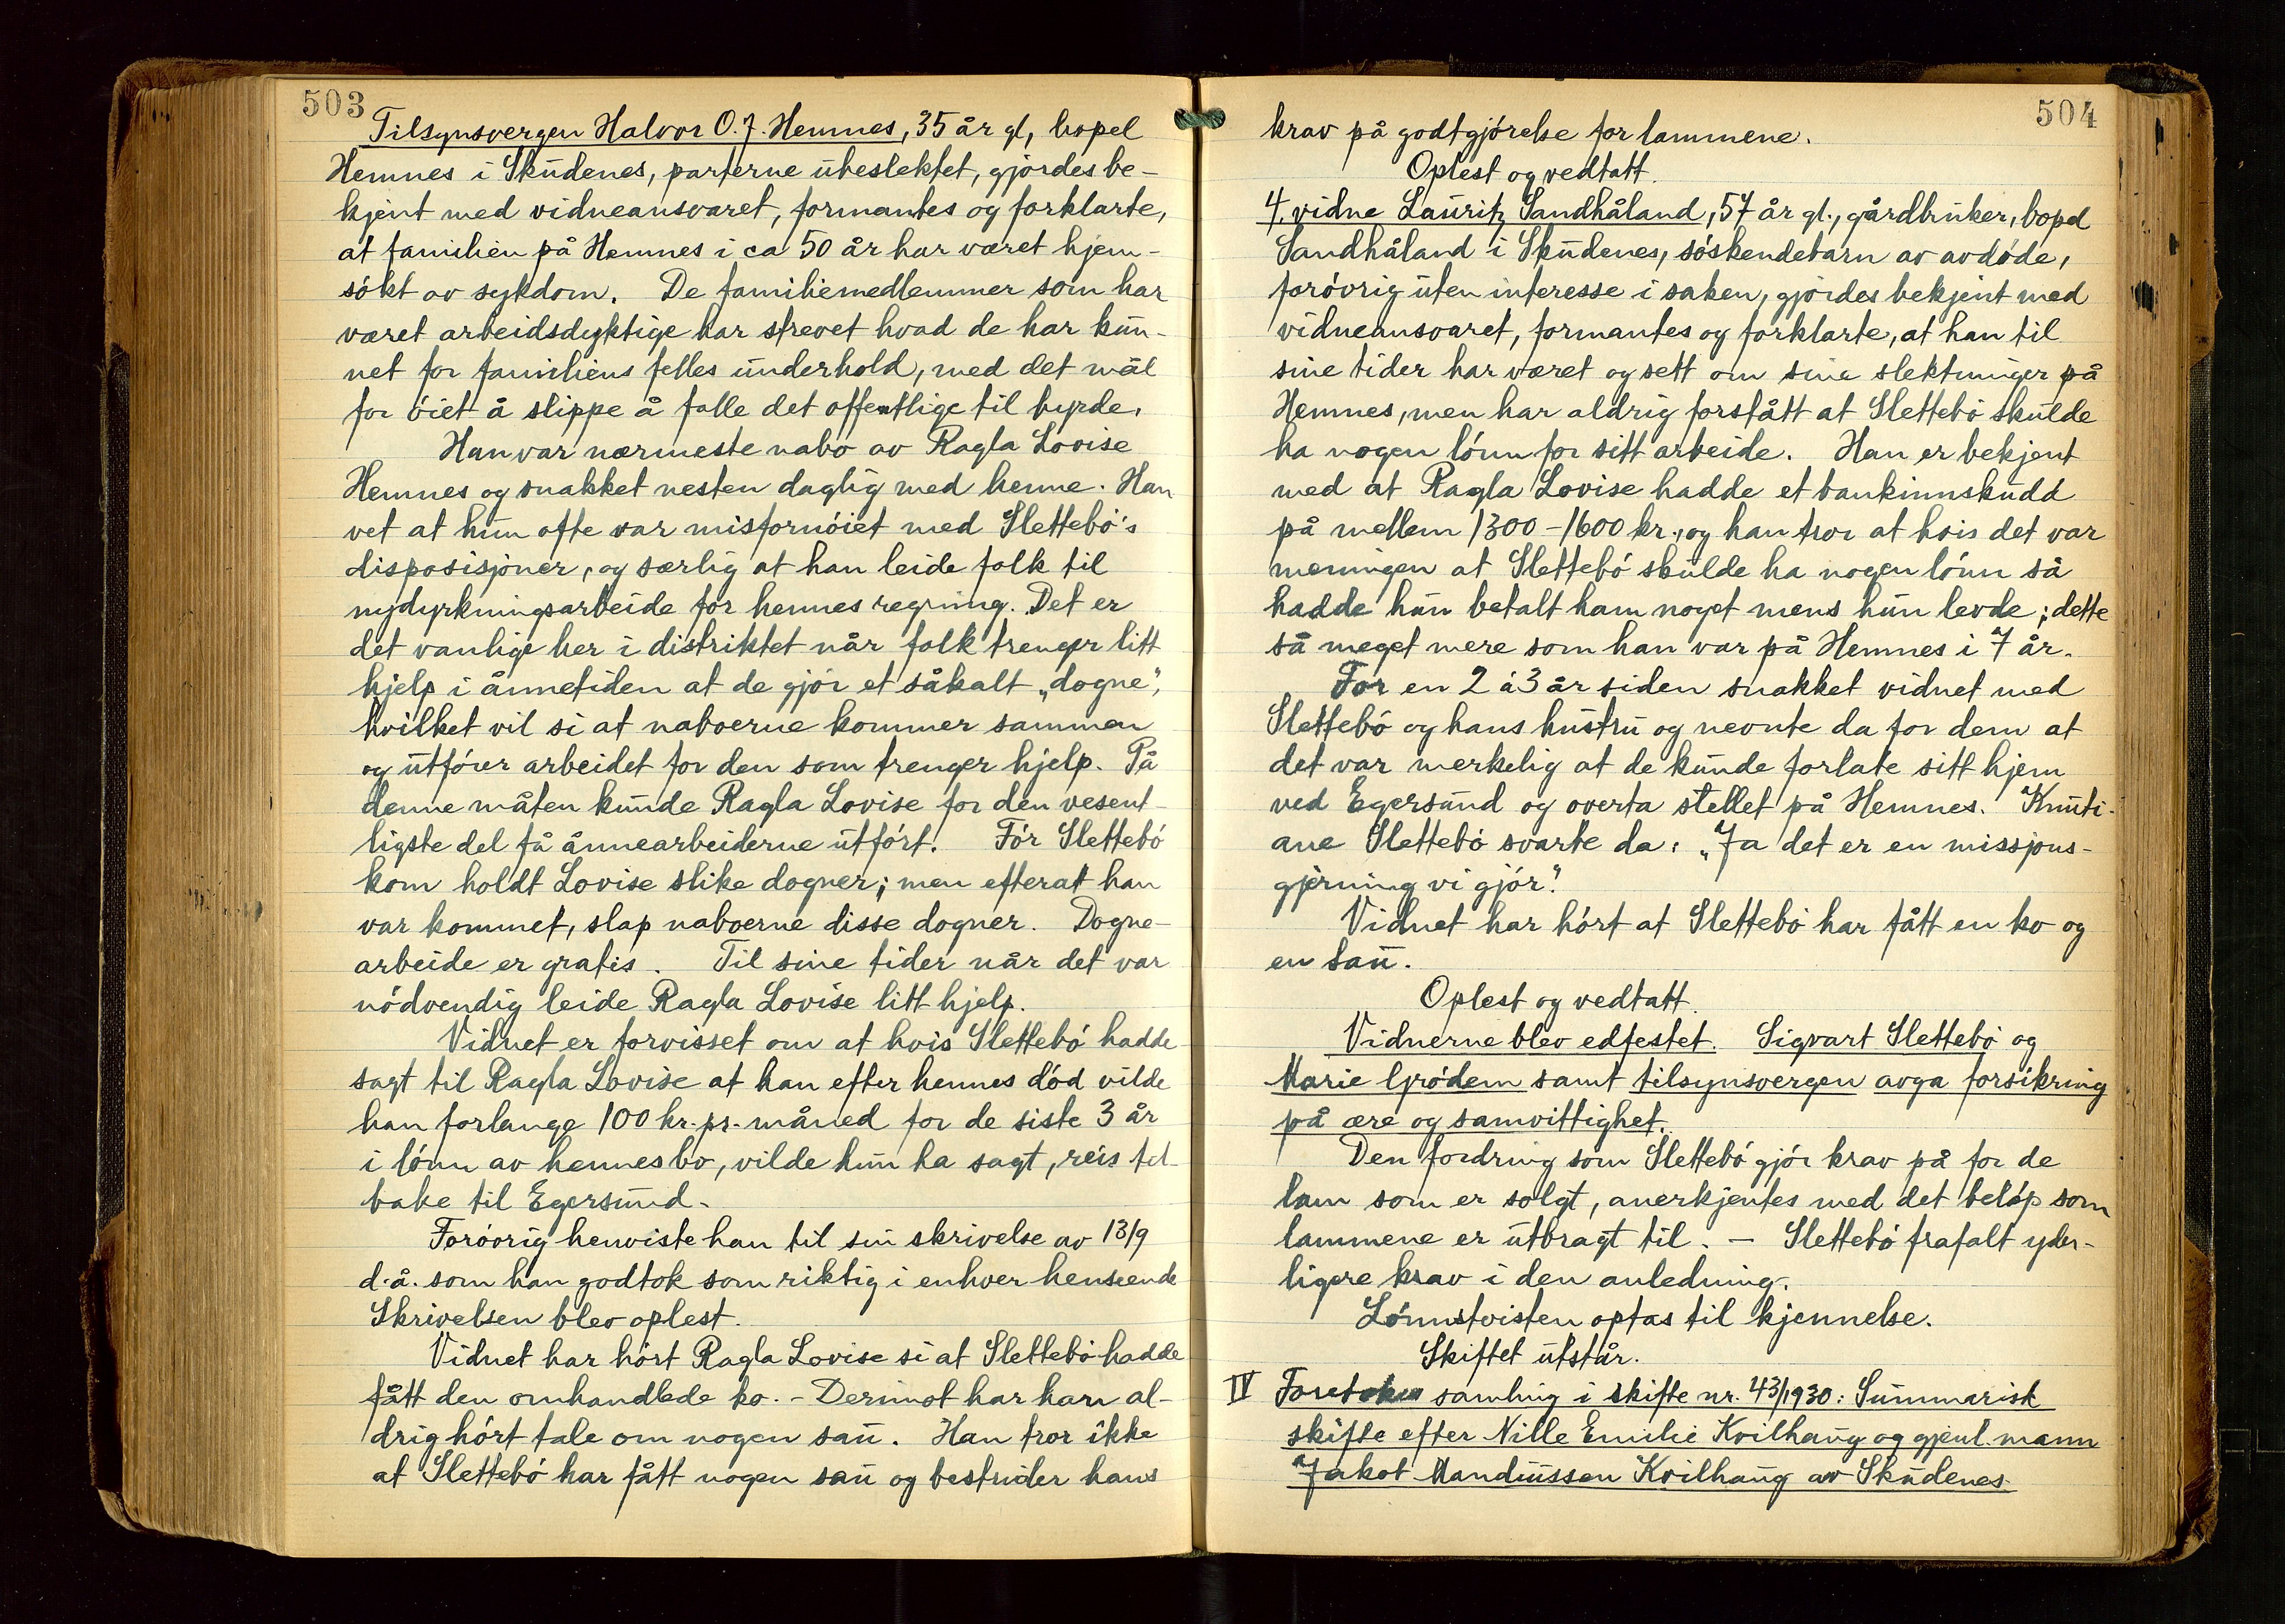 503
Tilsynsvergen Halvor O. J. Hemnes, 35 år gl, bopel
Hemnes i Skudenes, parterne ubeslektet, gjordes be-
kjent med vidneansvaret, formantes og forklarte,
at familien på Hemnes i ca 50 år har været hjem-
søkt av sykdom. De familiemedlemmer som har
været arbeidsdyktige har strevet hvad de har kun-
net for familiens felles underhold, med det mål
for øiet å slippe å falle det offentlige til byrde.
Han var nærmeste nabo av Ragla Lovise
Hemnes og snakket nesten daglig med henne. Han
vet at hun ofte var misfornøiet med Slettebø's
disposisjoner, og særlig at han leide folk til
nydyrkningsarbeide for hennes regning. Det er
det vanlige her i distriktet når folk trenger litt
hjelp i ånnetiden at de gjør et såkalt „dogne",
hvilket vil si at naboerne kommer sammen
og utfører arbeidet for den som trenger hjelp. På
denne måten kunde Ragla Lovise for den vesent-
ligste del få ånnearbeiderne utført. Før Slettebø
kom holdt Lovise slike dogner; men efterat han
var kommet, slap naboerne disse dogner. Dogne-
arbeide er gratis. Til sine tider når det var
nødvendig leide Ragla Lovise litt hjelp.
Vidnet er forvisset om at hvis Slettebø hadde
sagt til Ragla Lovise at han efter hennes død vilde
han forlange 100 kr. pr. måned for de siste 3 år
i lønn av hennes bo, vilde hun ha sagt, reis til-
bake til Egersund.
Forøvrig henviste han til sin skrivelse av 13/9
d.å. som han godtok som riktig i enhver henseende
Skrivelsen blev oplest.
Vidnet har hørt Ragla Lovise si at Slettebø hadde
fått den omhandlede ko. - Derimot har han al-
drig hørt tale om nogen sau. Han tror ikke
at Slettebø har fått nogen sau og bestrider hans
504
krav på godtgjørelse for lammene.
Oplest og vedtatt.
4. vidne Lauritz Sandhåland, 57 år gl., gårdbruker, bopel
Sandhåland i Skudenes, søskendebarn av avdøde,
forøvrig uten interesse i saken, gjordes bekjent med
vidneansvaret, formantes og forklarte, at han til
sine tider har været og sett om sine slektninger på
Hemnes, men har aldrig forstått at Slettebø skulde
ha nogen lønn for sitt arbeide. Han er bekjent
med at Ragla Lovise hadde et bankinnskudd
på mellem 1300-1600 kr., og han tror at hvis det var
meningen at Slettebø skulde ha nogen lønn så
hadde hun betalt ham noget mens hun levde; dette
så meget mere som han var på Hemnes i 7 år.
For en 2 à 3 år siden snakket vidnet med
Slettebø og hans hustru og nevnte da for dem at
det var merkelig at de kunde forlate sitt hjem
ved Egersund og overta stellet på Hemnes. Knuti-
ane Slettebø svarte da: „Ja det er en missjons-
gjerning vi gjør".
Vidnet har hørt at Slettebø har fått en ko og
en sau.
Oplest og vedtatt.
Vidnerne blev edfestet. Sigvart Slettebø og
Marie Grødem samt tilsynsvergen avga forsikring
på ære og samvittighet.
Den fordring som Slettebø gjør krav på for de
lam som er solgt, anerkjentes med det beløp som
lammene er utbragt til. - Slettebø frafalt yder-
ligere krav i den anledning.
Lønnstvisten optas til kjennelse.
Skiftet utstår.
IV Foretokes samling i skifte nr. 43/1930: Summarisk
skifte efter Nille Emilie Kvilhaug og gjenl. mann
Jakob Mandiussen Kvilhaug av Skudenes